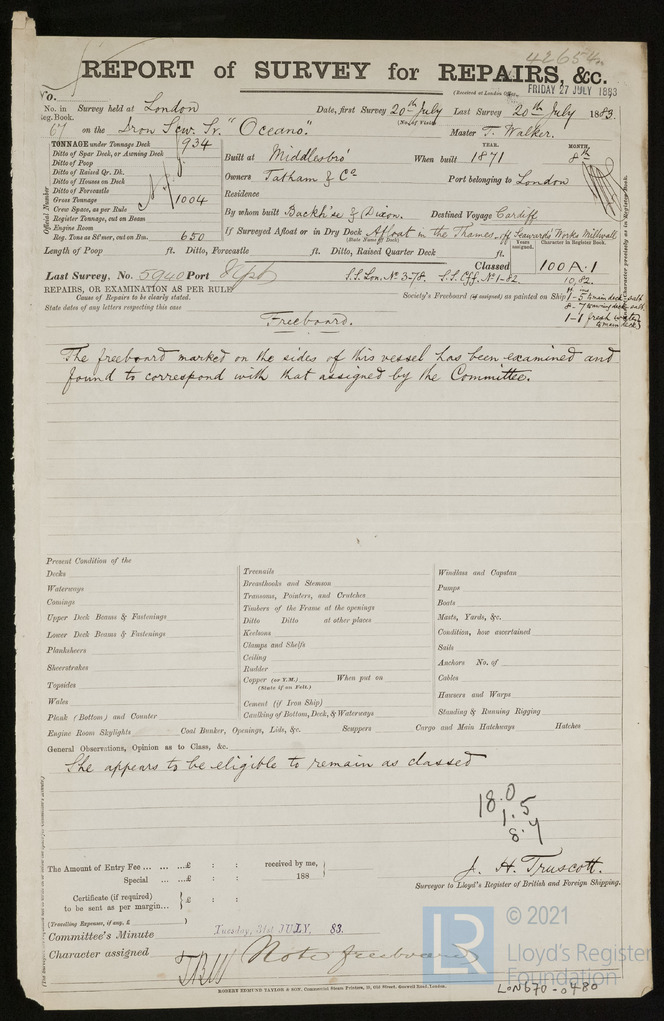 42654
REPORT of SURVEY for REPAIRS, &c.
(Received at London Office, FRIDAY 27 JULY 1883
No.
No. in Survey held at London Date, first Survey 20th July Last Survey 20th July 1883.
Reg. Book. (No. of Visits
67 on the Iron Scw. Sr. "Oceano." Master T. Walker.
TONNAGE under Tonnage Deck 934
Ditto of Spar Deck, or Awning Deck
Ditto of Poop
Ditto of Raised Qr. Dk.
Ditto of Houses on Deck
Ditto of Forecastle
Gross Tonnage 1004
Crew Space, as per Rule
Register Tonnage, cut on Beam
Engine Room
Reg. Tons as St'mer, cut on Bm. 650
Official Number
YEAR. MONTH.
Built at Middlesbro' When built 1871 8th
Owners Tatham & Co Port belonging to London
Residence
By whom built Backh'se & Dixon. Destined Voyage Cardiff
If Surveyed Afloat or in Dry Dock Afloat in the Thames off Seawards Works Millwall
(State Name of Dock)
Length of Poop ft. Ditto, Forecastle ft. Ditto, Raised Quarter Deck ft.
Years assigned. Character in Register Book.
Classed 100 A.1
10,82.
Last Survey, No. 5940 Port S.S. Lon. No. 3-78. S.S. Cff. No. 1-82.
REPAIRS, OR EXAMINATION AS PER RULE
Cause of Repairs to be clearly stated.
State dates of any letters respecting this case
Society's Freeboard (if assigned) as painted on Ship 1-5 to main deck - salt
8-7 to awning deck - salt
1-1 fresh water
to main deck
Character precisely as in Register Book.
Freeboard.
The freeboard marked on the sides of this vessel has been examined and
found to correspond with that assigned by the Committee.
Present Condition of the
Decks
Waterways
Comings
Upper Deck Beams & Fastenings
Lower Deck Beams & Fastenings
Planksheers
Sheerstrakes
Topsides
Wales
Plank (Bottom) and Counter
Engine Room Skylights
Treenails
Breasthooks and Stemson
Transoms, Pointers, and Crutches
Timbers of the Frame at the openings
Ditto Ditto at other places
Keelsons
Clamps and Shelfs
Ceiling
Rudder
Copper (or Y.M.) When put on
(State if on Felt.)
Cement (if Iron Ship)
Caulking of Bottom, Deck, & Waterways
Coal Bunker, Openings, Lids, &c. Scuppers
Windlass and Capstan
Pumps
Boats
Masts, Yards, &c.
Condition, how ascertained
Sails
Anchors No. of
Cables
Hawsers and Warps
Standing & Running Rigging
Cargo and Main Hatchways Hatches
General Observations, Opinion as to Class, &c.
She appears to be eligible to remain as classed
18.0
1.5
8.7
The Amount of Entry Fee ... ... ...£ : : received by me,
Special ... ...£ : : 188
Certificate (if required)
to be sent as per margin... £ : :
(Travelling Expenses, if any, £ )
J. H. Truscott.
Surveyor to Lloyd's Register of British and Foreign Shipping.
Committee's Minute Tuesday, 31st JULY, 83.
Character assigned Note freeboard
LR
© 2021
Lloyd's Register
Foundation
LON670-0480
ROBERT EDMUND TAYLOR & SON, Commercial Steam Printers, 19, Old Street, Goswell Road, London.